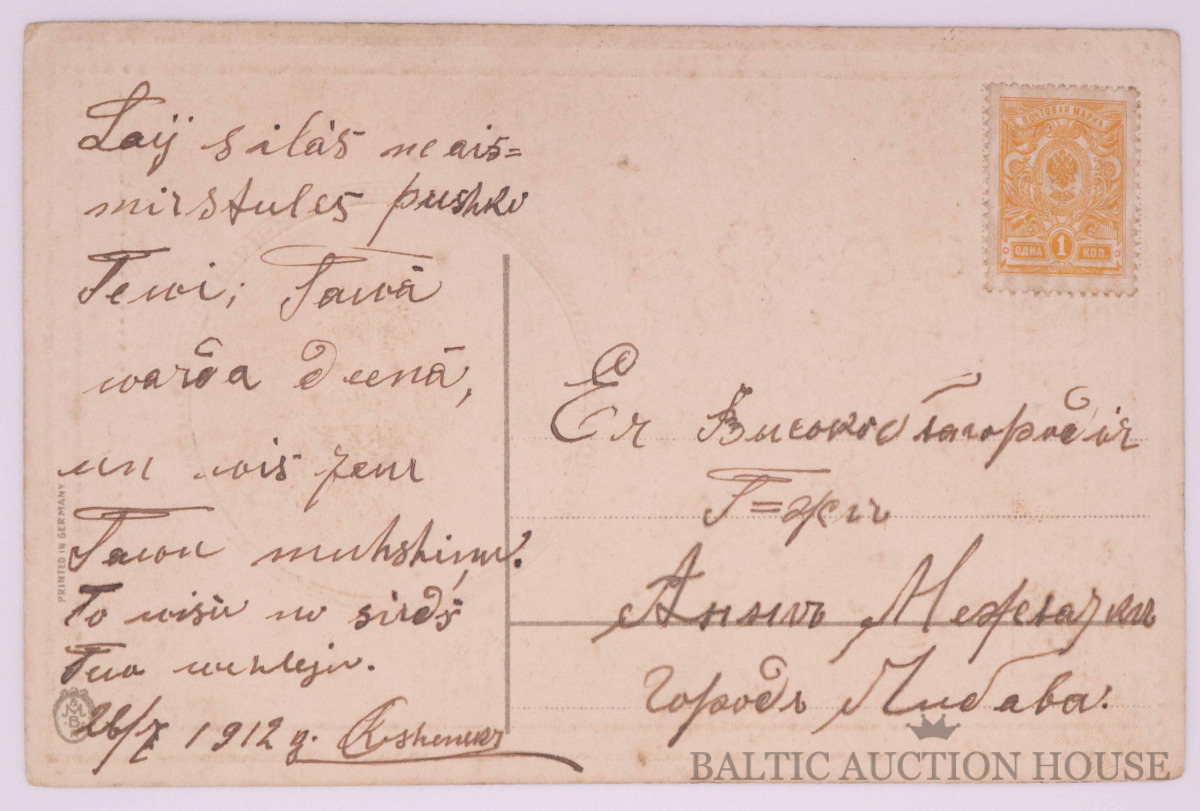 Laij silās neais=
mirstules pushko
Tewi; Tawā
warda deenā,
un wis zeur
Tawu muhshiņu.
To wisu no sirds
Tew wehleju.
26/7 1912 g.
PRINTED IN GERMANY
ПОЧТОВАЯ МАРКА
ОДНА 1 КОП.
Ея Высокоблагородiя
Г=жѣ
Аннѣ
городъ Либава.
BALTIC AUCTION HOUSE